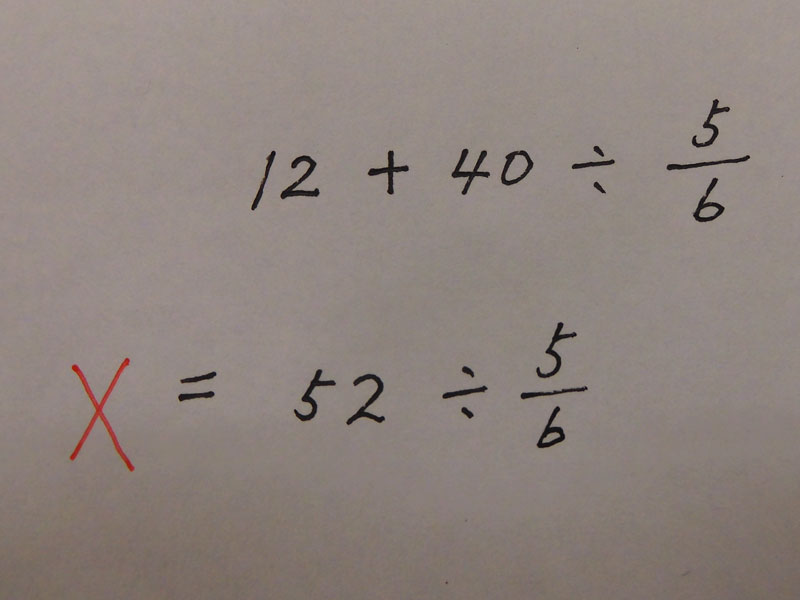 12 + 40 ÷ 5/6
X = 52 ÷ 5/6